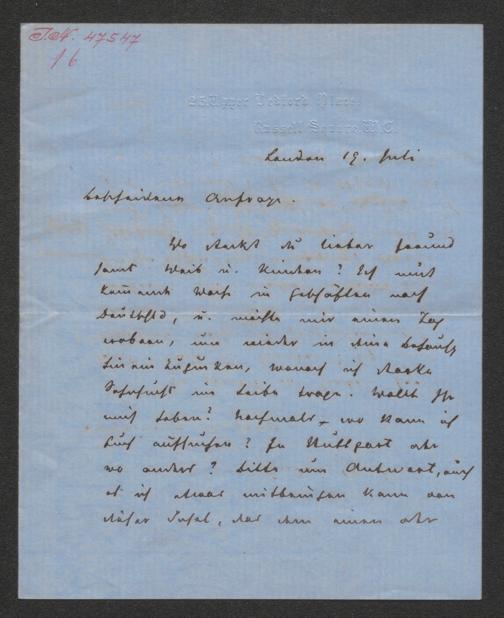 I.N. 47547
16
25, Upper Bedford Place,
Russell Square, W.C.
London 19. Juli
Bescheidene Anfrage.
Wo steckst du lieber Freund
samt Weib u. Kinder? Ich muß
kommende Woche in Geschäften nach
Deutschld, u. möchte mir einen Tag
erobern, um wieder in deine
wonach ich starke
Sehnsucht im Leibe trage. Wollt Ihr
mich haben? Nochmals, wo kann ich
Euch aufsuchen? In Stuttgart oder
wo anders? Bitte um Antwort, auch
ob ich etwas mitbringen kann von
dieser Insel, das dem einen oder